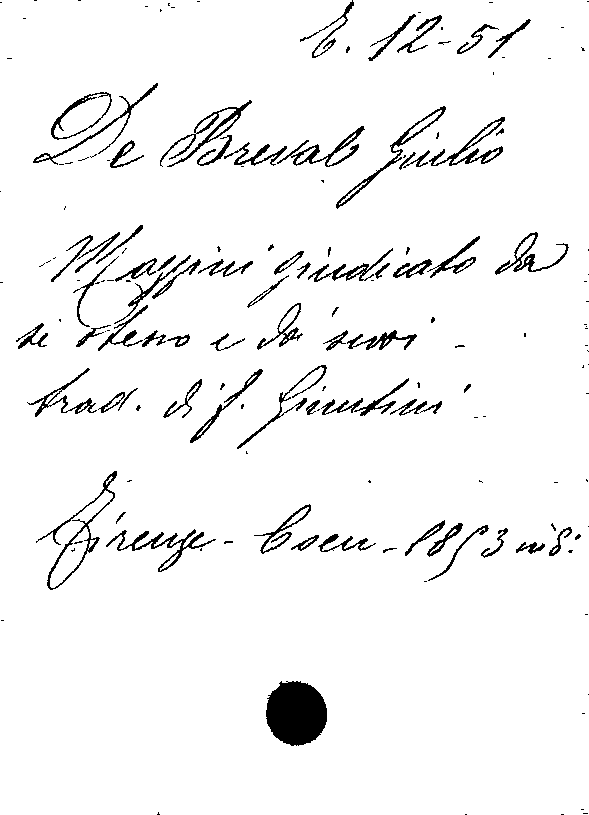 E. 12-51
De Breval Giulio
Mazzini giudicato da
se stesso e da' suoi -
trad. di f. Giuntini
Firenze - Coen - 1853 in 8: